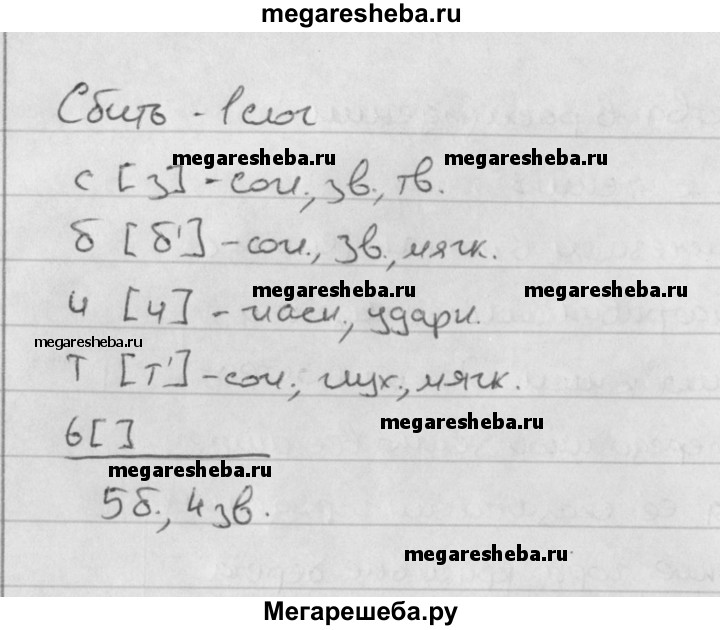 megaresheba.ru
Сбить - 1 слог
megaresheba.ru megaresheba.ru
с [з] - сог., зв., тв.
б [б'] - сог., зв., мягк.
megaresheba.ru megaresheba.ru
и [и] - гласн., ударн.
megaresheba.ru
т [т'] - сог., глух., мягк.
megaresheba.ru
ь [ ]
megaresheba.ru
5 б., 4 зв.
megaresheba.ru
Мегарешеба.ру